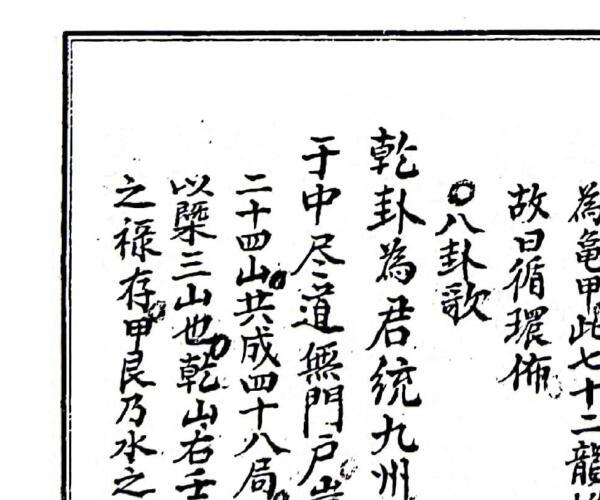 為龜甲此七十二龍
故曰循環佈
○八卦歌
乾卦為君統九州
于中尽道無門戶
二十四山共成四十八局
以槩三山也乾山右壬
之祿存甲艮乃水之